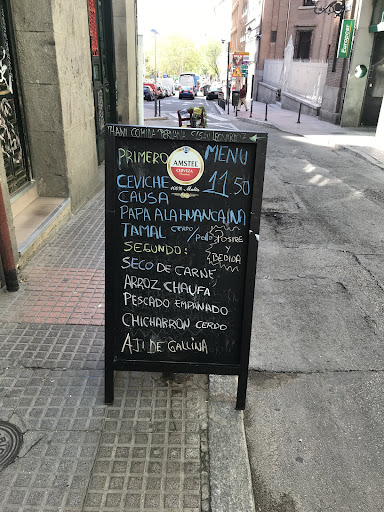 COMIDA PERUANA
PRIMERO MENU
AMSTEL
CERVEZA
100% Malta
CEVICHE 11,50
CAUSA
PAPA A LA HUANCAINA
TAMAL CERDO/POLLO POSTRE
Y
BEBIDA
SEGUNDO:
SECO DE CARNE
ARROZ CHAUFA
PESCADO EMPANADO
CHICHARRON CERDO
AJI DE GALLINA
Europcar